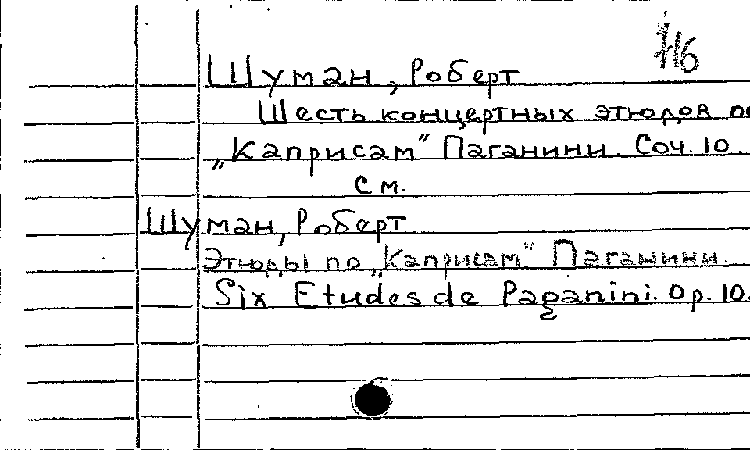 116
Шуман, Роберт
Шесть концертных этюдов по
„Каприсам" Паганини. Соч. 10
см.
Шуман, Роберт
Этюды по „Каприсам" Паганини.
Six Etudes de Paganini. Op. 10.